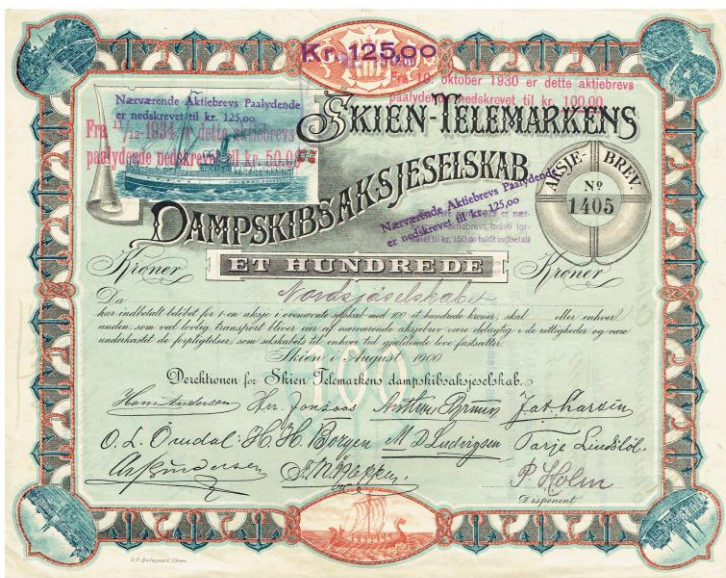 Kr. 125,00
Fra 10. oktober 1930 er dette aktiebrevs
paalydende nedskrevet til kr. 100.00
Nærværende Aktiebrevs Paalydende
er nedskrevet til kr. 125,00
Fra 11/12-1934 er dette aktiebrevs
paalydende nedskrevet til kr. 50.00
SKIEN-TELEMARKENS
DAMPSKIBSAKSJESELSKAB.
AKSJE-BREV.
Nº
1405
Nærværende Aktiebrevs Paalydende
er nedskrevet til kr. 125,00
er nær-
aktiebrevs beløb for-
til kr. 150.00 fuldt indbetalt
Kroner ET HUNDREDE Kroner
Da Nordsjøselskabet
har indbetalt beløbet for 1-en aksje i ovennævnte selskab med 100-et hundrede kroner, skal eller enhver
anden, som ved lovlig transport bliver eier af nærværende aksjebrev være delagtig i de rettigheder og være
underkastet de forpligtelser, som selskabets til enhver tid gjældende love fastsætter.
Skien i August 1900
100
Derektionen for Skien Telemarkens dampskibsaksjeselskab.
Hans Andersen
O. L. Ørndal H. H. Borgen M D Ludvigsen
P. Holm
Disponent